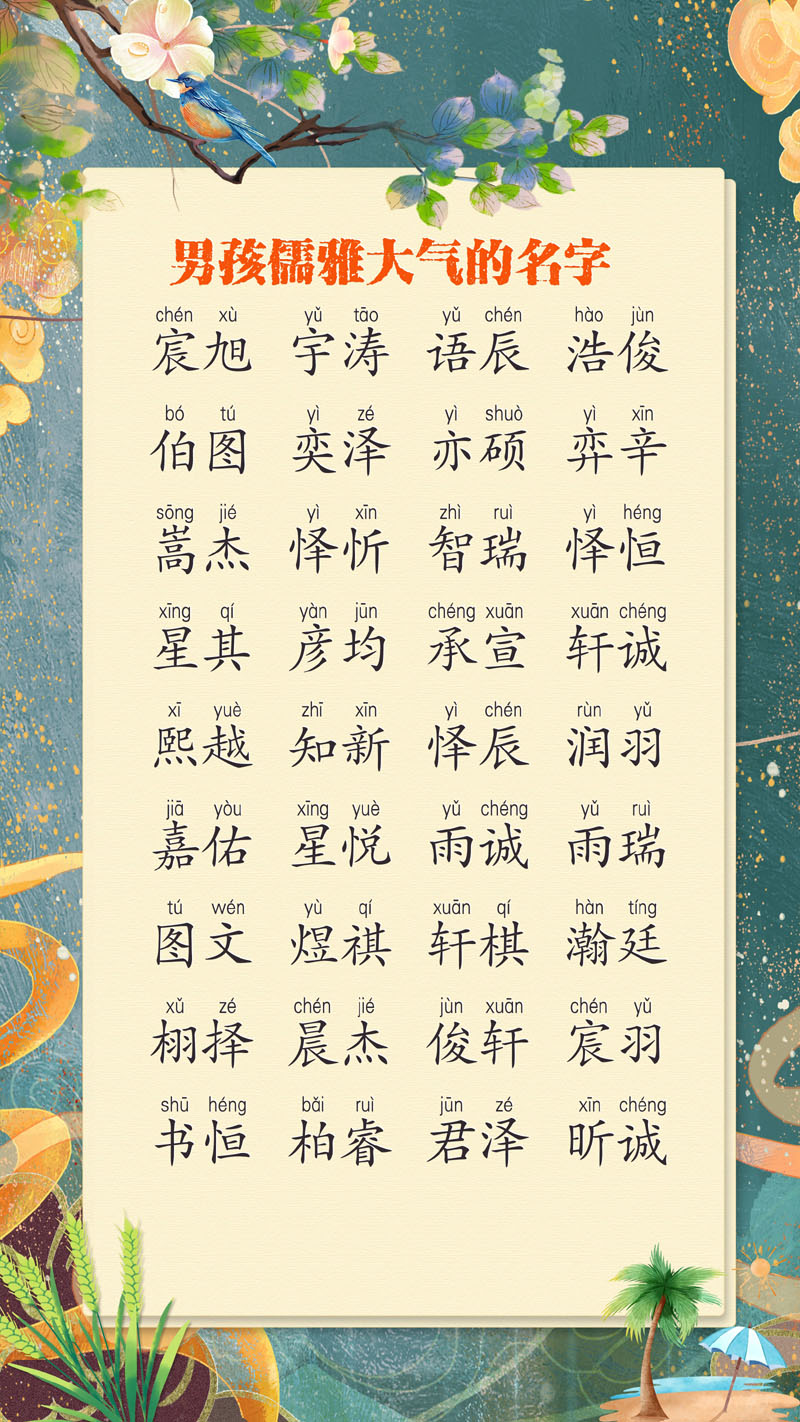 男孩儒雅大气的名字
chén xù yǔ tāo yǔ chén hào jùn
宸旭 宇涛 语辰 浩俊
bó tú yì zé yì shuò yì xīn
伯图 奕泽 亦硕 弈辛
sōng jié yì xīn zhì ruì yì héng
嵩杰 怿忻 智瑞 怿恒
xīng qí yàn jūn chéng xuān xuān chéng
星其 彦均 承宣 轩诚
xī yuè zhī xīn yì chén rùn yǔ
熙越 知新 怿辰 润羽
jiā yòu xīng yuè yǔ chéng yǔ ruì
嘉佑 星悦 雨诚 雨瑞
tú wén yù qí xuān qí hàn tíng
图文 煜祺 轩棋 瀚廷
xǔ zé chén jié jùn xuān chén yǔ
栩择 晨杰 俊轩 宸羽
shū héng bǎi ruì jūn zé xīn chéng
书恒 柏睿 君泽 昕诚